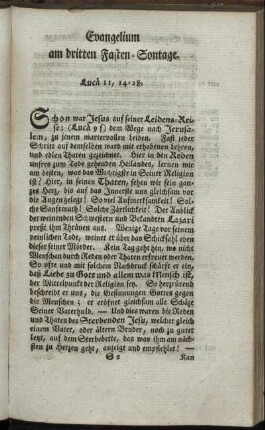 Evangelium
am dritten Fasten-Sontage.
Lucä 11, 14-28.
Schon war Jesus auf seiner Leidens-Rei-
se; (Lucä 9 f) dem Wege nach Jerusa-
lem, zu jenem martervollen leiden. Fast jeder
Schrit auf demselben ward mit erhabenen Lehren,
und edlen Thaten gezeichnet. Hier in den Reden
unsres zum Tods gehenden Heilandes, lernen wir
am besten, was das Wichtigste in Seiner Religion
ist! Hier, in seinen Thaten, sehen wir sein gan-
zes Herz, bis auf das Innerste uns gleichsam vor
die Augen gelegt! So viel Aufmerksamkeit! Sol-
che Sanftmuth! Solche Zärtlichkeit! Der Anblick
der weinenden Schwestern und Bekandten Lazari
preßt ihm Thränen aus. Wenige Tage vor seinem
peinlichen Tode, weinet er über das Schicksahl eben
dieser seiner Mörder. Kein Tag geht hin, wo nicht
Menschen durch Reden oder Thaten erfreuet werden.
So ofte und mit solchem Nachdruck schärft er ein,
daß Liebe zu Gott und allem was Mensch ist,
der Mittelpunkt der Religion sey. So herzrürend
beschreibt er uns, die Gesinnungen Gottes gegen
die Menschen; er eröfnet gleichsam alle Schäze
Seiner Vaterhuld. — Und dies waren die Reden
und Thaten des Sterbenden Jesu, welcher gleich
einem Vater, oder ältern Bruder, noch zu guter
lezt, auf dem Sterbebette, das was ihm am näch-
sten zu Herzen geht, anzeigt und empfiehlet! —
Ss
Kan